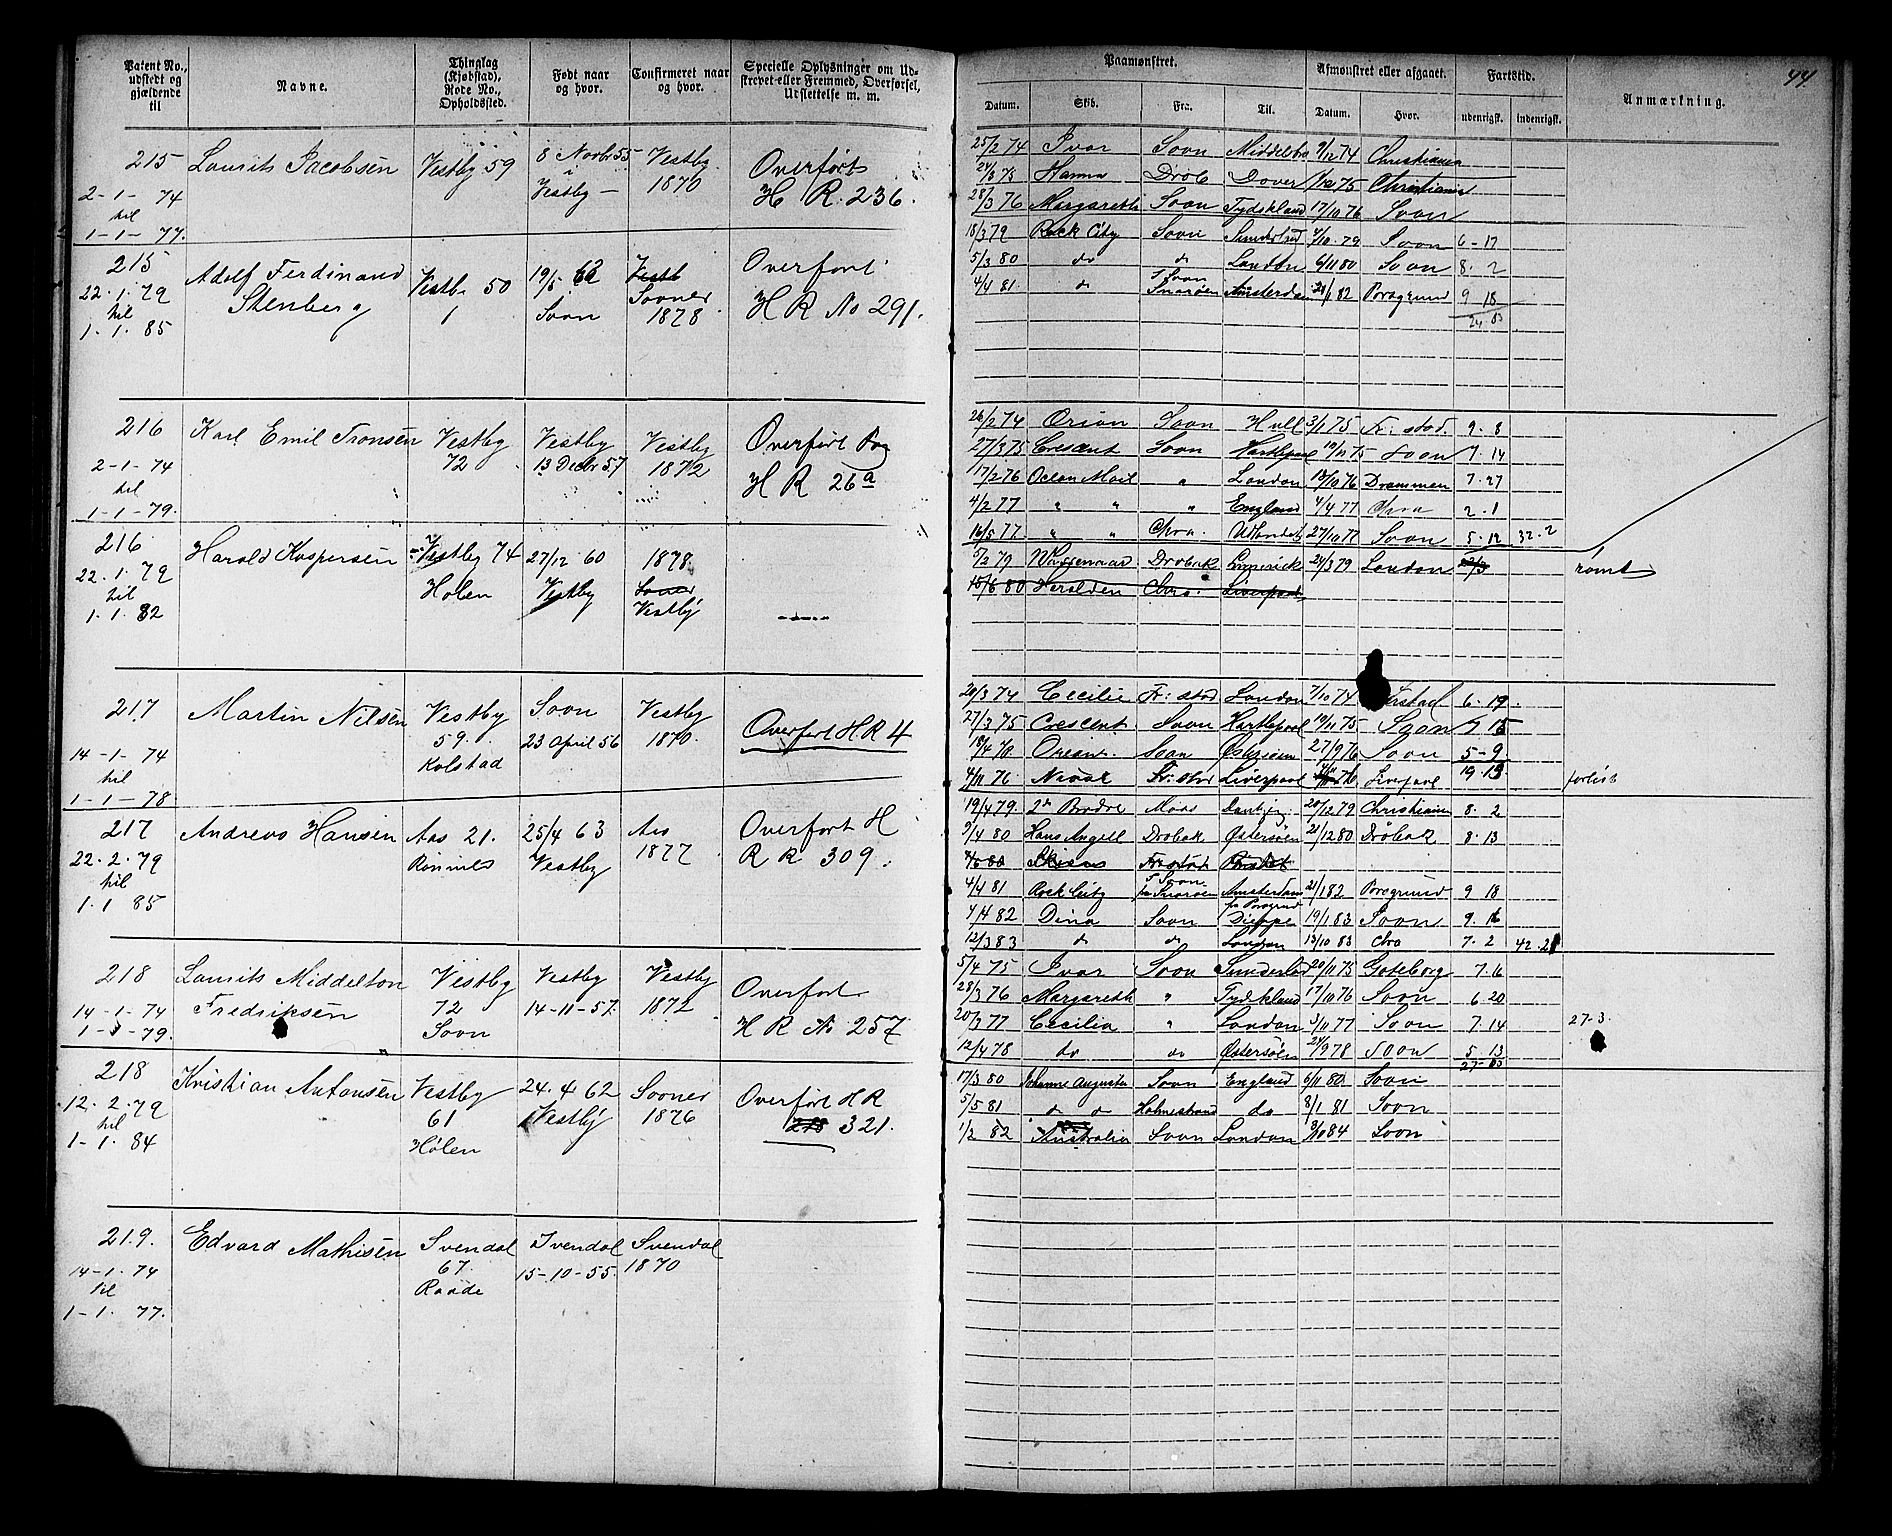 Patent No., udstedt og gjældende til
Navne.
Thinglag (Kjøbstad), Rode No., Opholdssted.
Født naar og hvor.
Confirmeret naar og hvor.
Specielle Oplysninger om Udskrevet eller Fremmed, Overførsel, Udslettelse m. m.
215 Laurits Jacobsen Vestby 59 8 Novbr 55 Vestby Overført
2-1-74 Vestby 1870 H R. 236.
til
1-1-77.
215 Adolf Ferdinand Vestby 50 19/5 62 Overført
22.1.79 Stenberg 1 Soon Sooner H R No 291.
til 1878
1.1.85
216 Karl Emil Tronsen Vestby Vestby Vestby Overført Pag
2-1-74 72 13 Decbr 57 1872 H R 26a
til
1-1-79.
216 Harald Kaspersen Vestby 74 27/12 60 1878.
22.1.79 Holen Vestby Soner
til Vestby
1.1.82
217 Martin Nilsen Vestby Soon Vestby Overført H R 4
14-1-74 59. 23 April 56 1870.
til Kolstad
1-1-78
217 Andreas Hansen Aas 21. 25/4 63 Aas Overført H
22.2.79 Vestby 1877 R R 309.
til
1.1 85
218 Laurits Middelton Vestby Vestby Vestby Overført
14-1-74 Fredriksen 72 14-11-57. 1872 H R No 257
1-1-79. Soon
218 Kristian Antonsen Vestby 24.4 62 Sooner Overført H R
12.2.79 61 Vestby 1876 321.
til Hølen
1-1.84
219. Edvard Mathisen Svendal Svendal Svendal
14-1-74 67. 15-10-55. 1870
til Raade
1-1.77.
44.
Paamønstret.
Afmønstret eller afgaaet.
Fartstid.
Anmærkning.
Datum. Skib. Fra. Til. Datum. Hvor. udenrigsk. indenrigsk.
25/2 74 Ivar Soon Middelbo 9/12 74 Christiania
24/6 75 Hanna Drøb Dover 1/12 75 Christiania
28/3 76 Margareth Soon Tydskland 17/10 76 Soon
18/3 79 Rock City Soon 7/10 79 Soon 6-17
5/3 80 do do London 6/11 80 Soon 8.2
4/4 81 do Soon Snarøen Amsterdam 21/1 82 Porsgrund 9 18
24.03
26/2 74 Orion Soon Hull 3/1 75 Fr:stad. 9.8
27/3 75 Crescent Soon Hartlepool 10/11 75 Soon 7.14
17/2 76 Ocean Mail " London 13/10 76 Drammen 7.27
4/2 77 " " " England 4/4 77 Chra 2.1
16/5 77 " " Chra. Udlandet 27/10 77 Soon 5.12 32.2
5/2 79 Drobak Limerick 24/3 79 London rømt
15/6 80 Haralden Chra. Liverpool
20/3 74 Cecilie Fr:stad London 7/10 74 Frstad 6.19.
27/3 75 Crescent Soon Hartlepool 10/11 75 Soon 7 15
18/4 76 Orient. Soon Østersøen 27/9 76 Soon 5-9
4/11 76 Norsk Fr:stad Liverpool 76 Liverpool 19.13 forlist
19/4 79. 2de Brødre Moss Dantzig 20/12 79 Christiania 8.2
9/4 80 Hans Angell Drøbak Østersøen 21/12 80 Drøbak 8.13
4/4 81 Rock City Soon fra Snarøen Amsterdam 21/1 82 Porsgrund 9 18
4/4 82 Dina Soon fra Porsgrund Dieppe 19/1 83 Soon 9.16
12/3 83 do do London 13/10 83 Chra 7.2 42.21
5/4 75 Ivar Soon Sunderland 20/11 75 Goteborg 7.16
28/3 76 Margareth " Tydskland 17/10 76 Soon 6 20
20/3 77 Cecilia " London 3/11 77 Soon 7.14 27-3.
12/4 78 do do Østersøen 24/9 78 Soon 5 13
27-03
17/3 80 Johanne Augusta Soon England 6/11 80 Soon
5/5 81 do do Holmestrand do 8/1 81 Soon
1/2 82 Australia Soon London 3/10 84 Soon